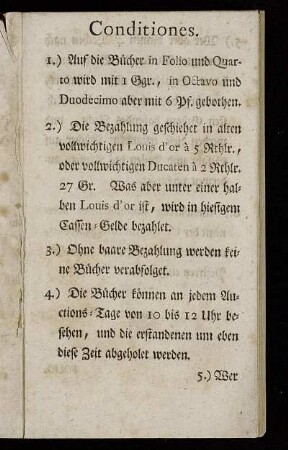 Conditiones.
1.) Auf die Bücher in Folio und Quar-
to wird mit 1 Ggr., in Octavo und
Duodecimo aber mit 6 Pf. gebothen.
2.) Die Bezahlung geschiehet in alten
vollwichtigen Louis d'or à 5 Rthlr.,
oder vollwichtigen Ducaten à 2 Rthlr.
27 Gr. Was aber unter einer hal-
ben Louis d'or ist, wird in hiesigem
Cassen-Gelde bezahlet.
3.) Ohne baare Bezahlung werden kei-
ne Bücher verabfolget.
4.) Die Bücher können an jedem Au-
ctions-Tage von 10 bis 12 Uhr be-
sehen, und die erstandenen um eben
diese Zeit abgeholet werden.
5.) Wer